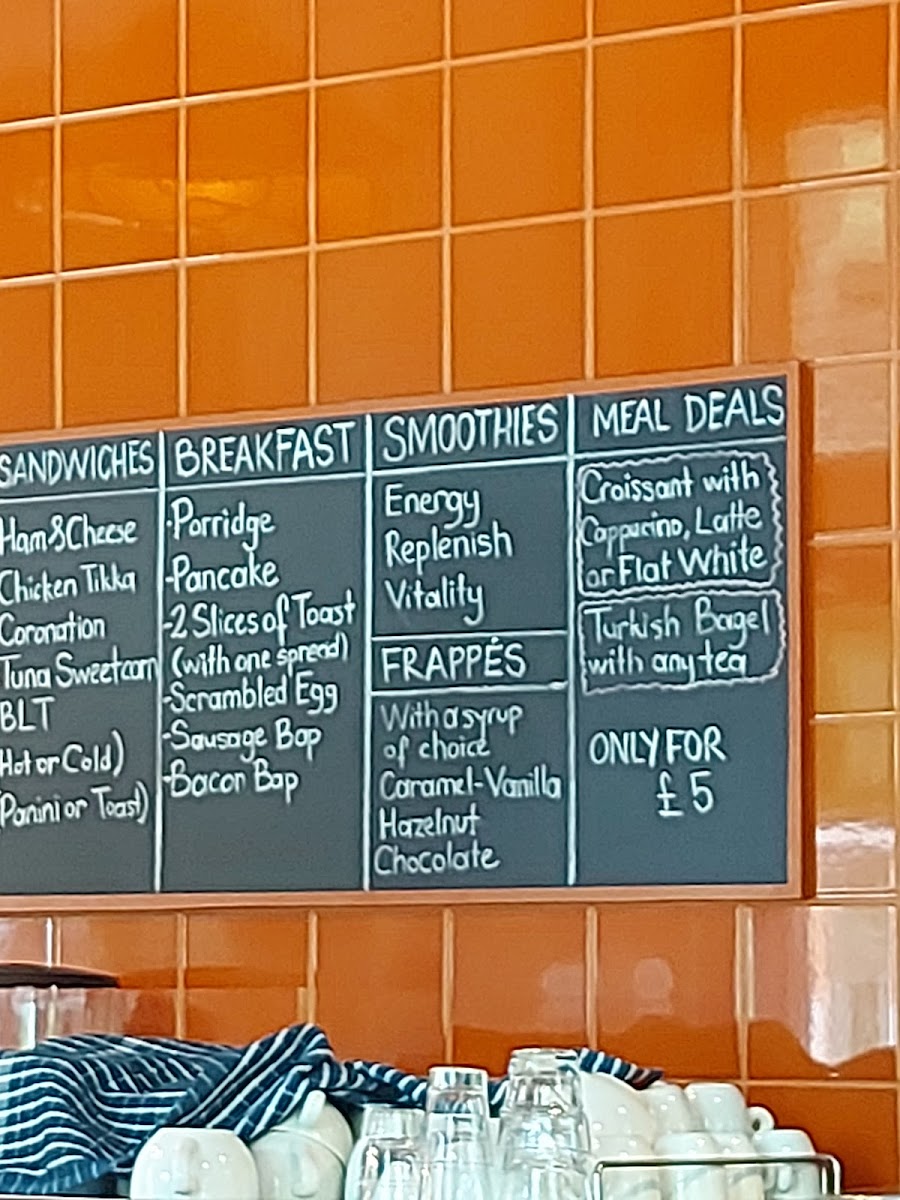 SANDWICHES
Ham & Cheese
Chicken Tikka
Coronation
Tuna Sweetcorn
BLT
Hot or Cold)
Panini or Toast)
BREAKFAST
-Porridge
-Pancake
-2 Slices of Toast
(with one spread)
-Scrambled Egg
-Sausage Bap
-Bacon Bap
SMOOTHIES
Energy
Replenish
Vitality
FRAPPÉS
With a syrup
of choice
Caramel-Vanilla
Hazelnut
Chocolate
MEAL DEALS
Croissant with
Cappucino, Latte
or Flat White
Turkish Bagel
with any tea
ONLY FOR
£5